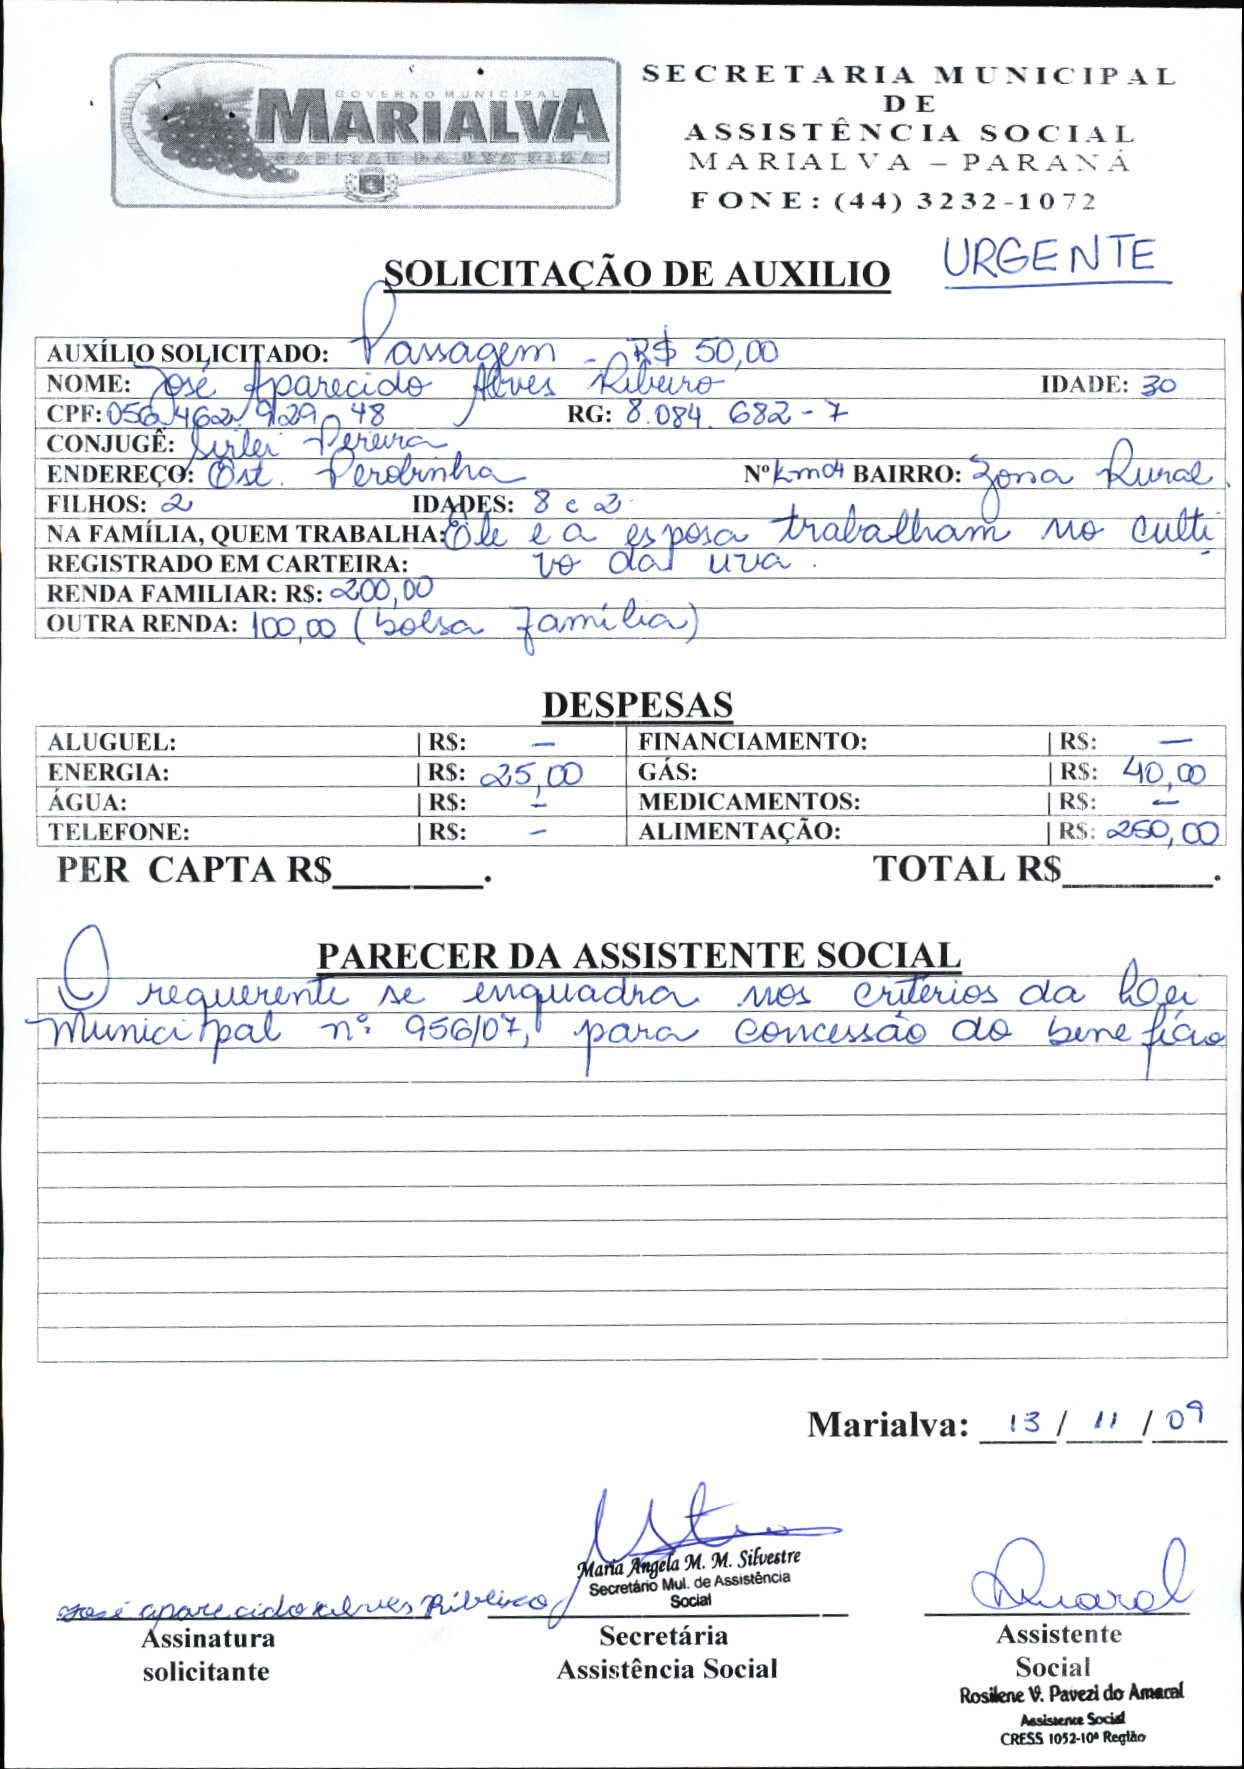 GOVERNO MUNICIPAL
MARIALVA
CAPITAL DA UVA FINA
SECRETARIA MUNICIPAL
DE
ASSISTÊNCIA SOCIAL
MARIALVA – PARANÁ
FONE: (44) 3232-1072
SOLICITAÇÃO DE AUXILIO URGENTE
AUXÍLIO SOLICITADO: Passagem - R$ 50,00
NOME: José Aparecido Alves Ribeiro IDADE: 30
CPF: 056.462.929-48 RG: 8.084.682-7
CONJUGÊ: Sirlei Pereira
ENDEREÇO: Est. Perobinha Nº Km04 BAIRRO: Zona Rural.
FILHOS: 2 IDADES: 8 e 3
NA FAMÍLIA, QUEM TRABALHA: Ele e a esposa trabalham no culti
REGISTRADO EM CARTEIRA: vo da uva.
RENDA FAMILIAR: R$: 200,00
OUTRA RENDA: 100,00 (bolsa família)
DESPESAS
ALUGUEL: | R$: – FINANCIAMENTO: | R$: –
ENERGIA: | R$: 25,00 GÁS: | R$: 40,00
ÁGUA: | R$: – MEDICAMENTOS: | R$: –
TELEFONE: | R$: – ALIMENTAÇÃO: | R$: 250,00
PER CAPTA R$________. TOTAL R$________.
PARECER DA ASSISTENTE SOCIAL
O requerente se enquadra nos critérios da Lei
Municipal nº 956/07, para concessão do benefício
Marialva: 13 / 11 / 09
Maria Angela M. M. Silvestre
Secretário Mul. de Assistência
Social
José aparecido alves Ribeiro
Amaral
Assinatura
solicitante
Secretária
Assistência Social
Assistente
Social
Rosilene V. Pavezi do Amaral
Assistente Social
CRESS 1052-10ª Região